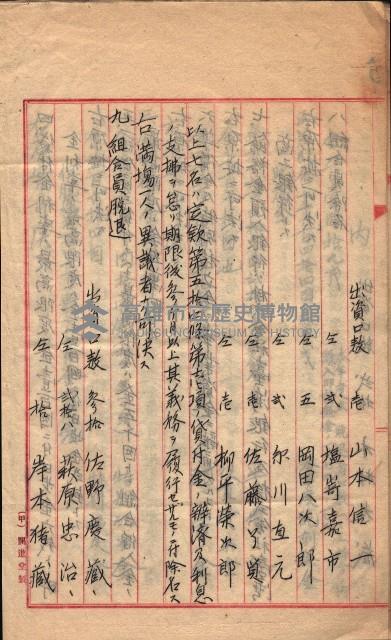 出資口数 壱 山本信一
仝 弐 塩嵜嘉市
仝 五 岡田八次郎
仝 弐 川直元
仝 壱 佐藤
仝 壱 柳平榮次郎
以上七名ハ定款第五拾條第項貸付金ノ辨済及利息
ノ支拂ヲ怠リ期限後参ヶ月以上其義務ヲ履行セザルモノニ付除名ス
右満場一人ノ異議者ナク可決ス
九 組合員脱退
出資口数 参拾 佐野慶藏
仝 弐拾八 萩原忠治
仝 拾 岸本猪藏
(甲) 開進堂製
高雄市立歷史博物館
KAOHSIUNG MUSEUM OF HISTORY